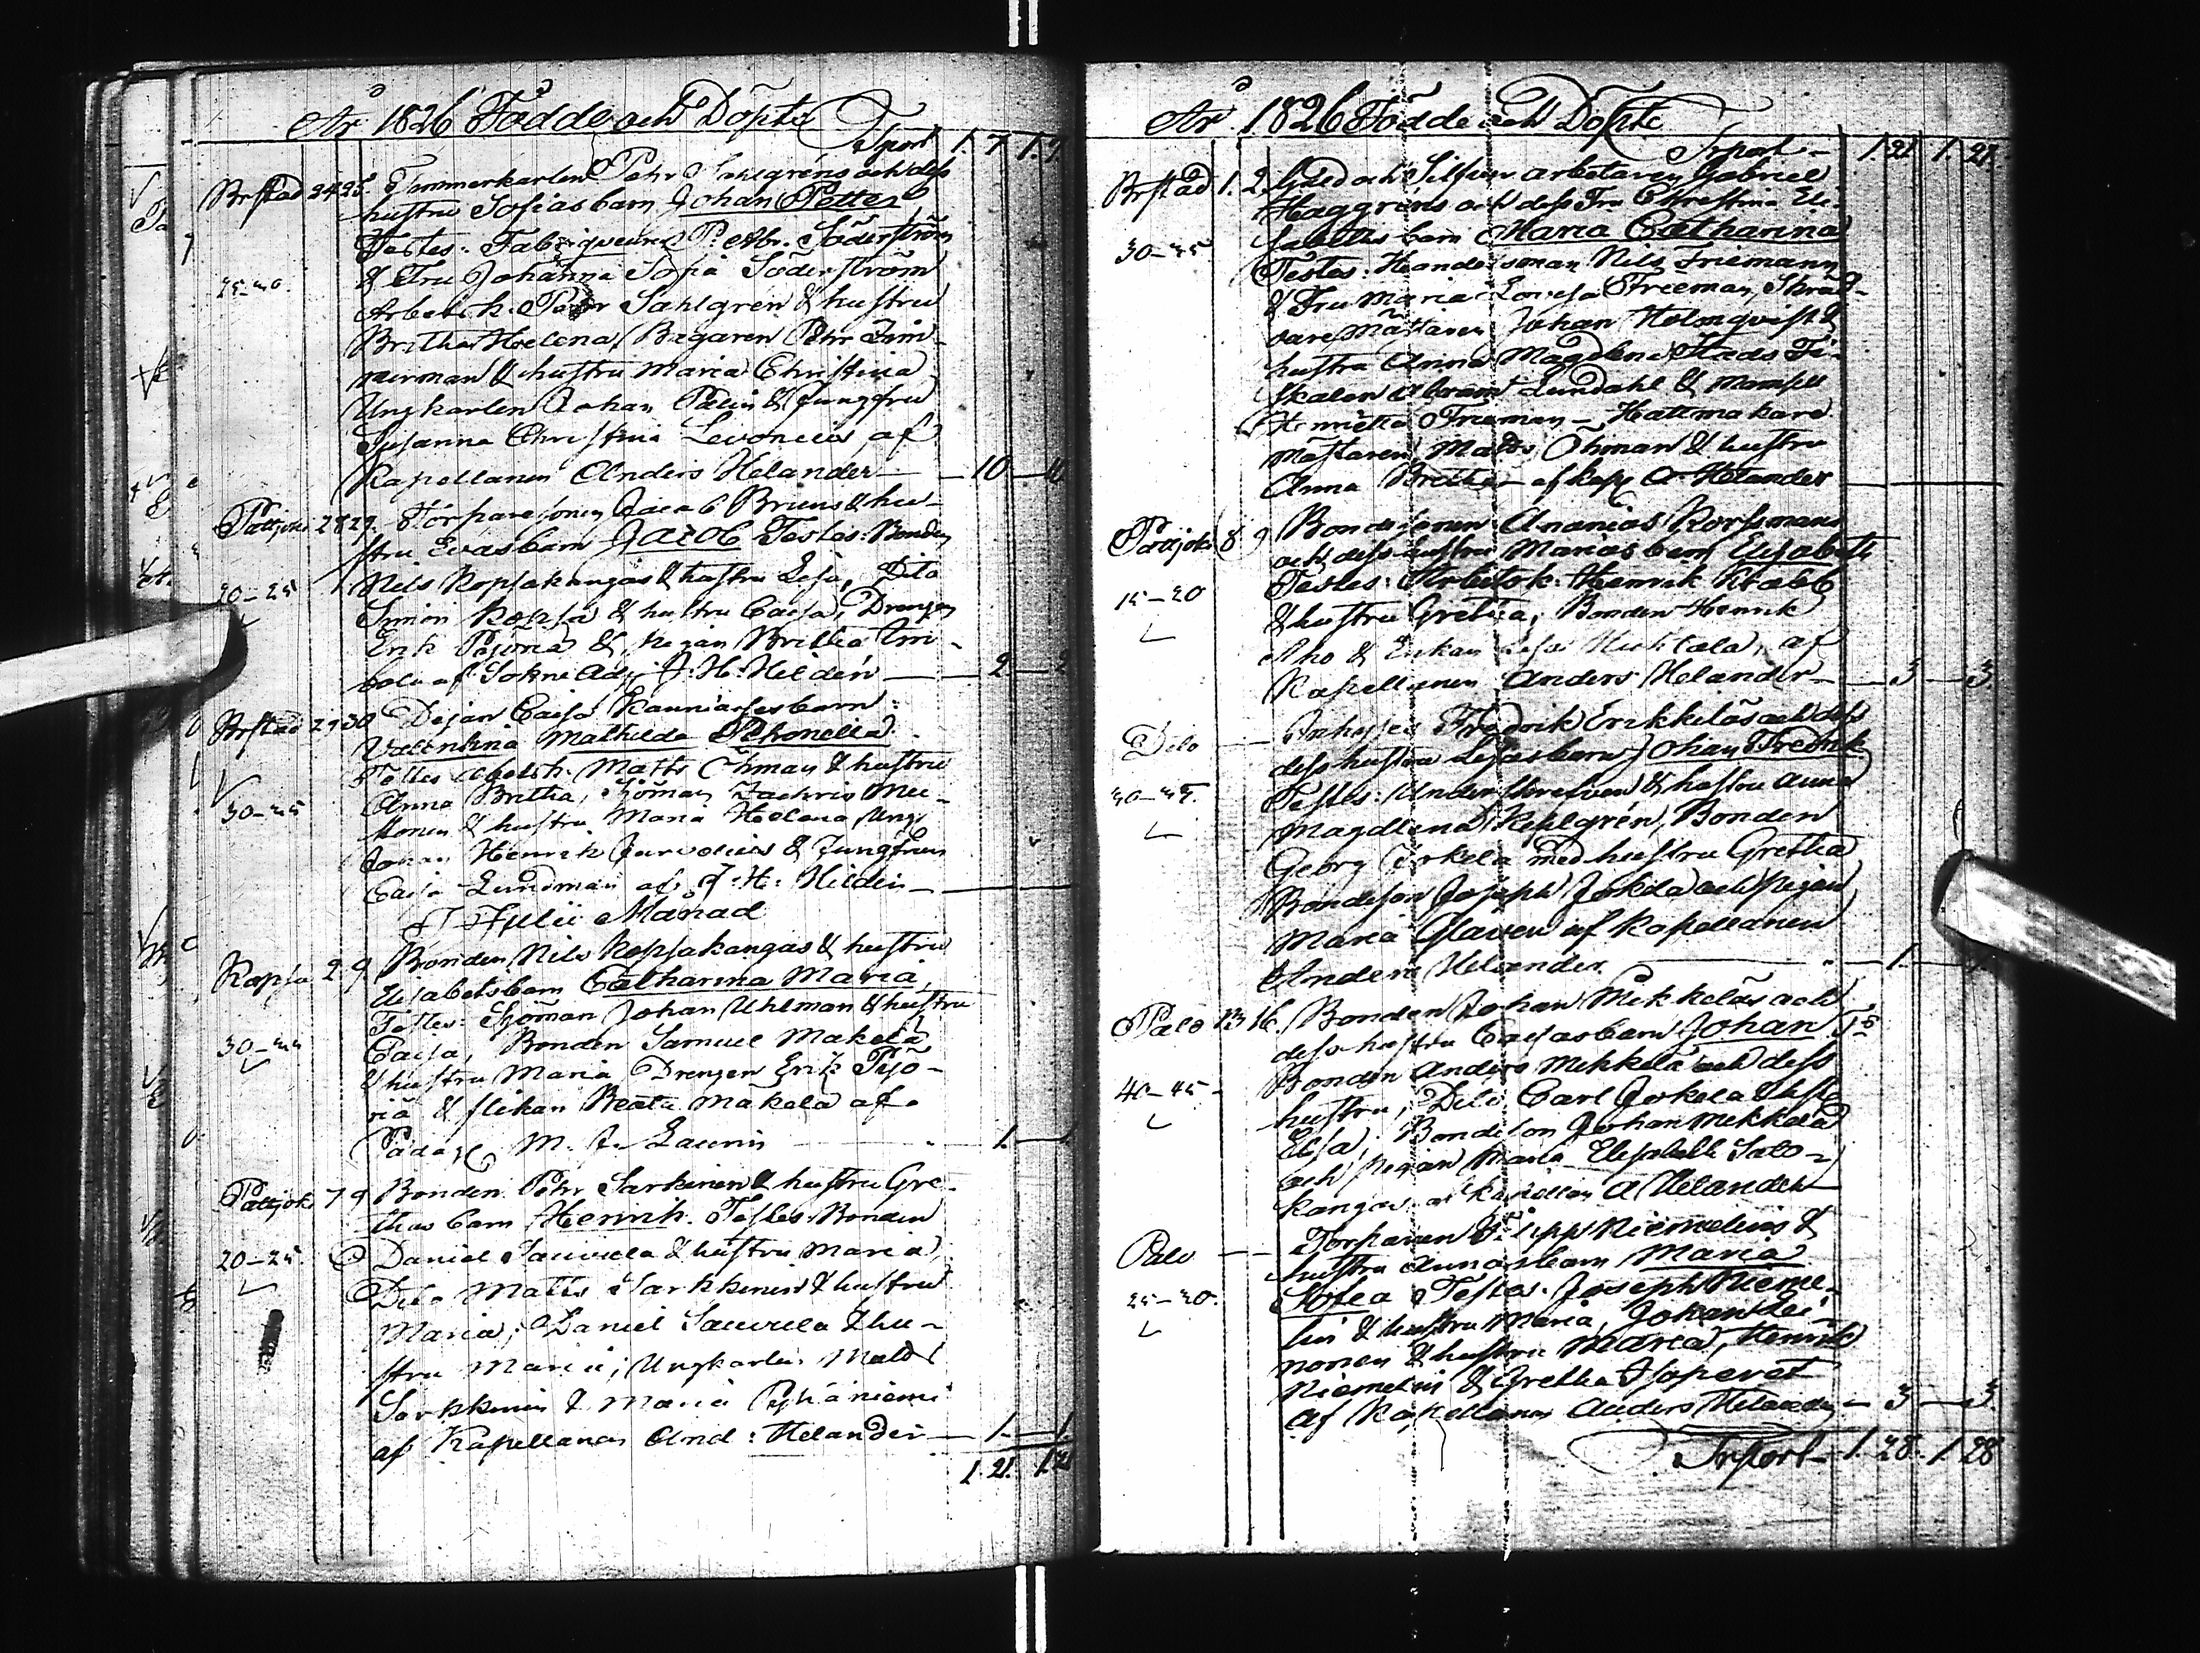 År 1826 Födde och Döpte
Trport 1. 7 1. 7.
Brstad 24 25. Timmerkarlen Pehr Sahlgréns och dess
hustru Sofias barn Johan Petter
Testes: Fabriqueuren P. Abr. Söderström
25-30. & Fru Johanna Sofia Söderström
Arbets k. Pehr Sahlgrén & hustru
Britha Helena, Bagaren Pehr Zim-
merman & hustru Maria Christina
Ungkarlen Johan Palin & Jungfru
Susanna Christina Levonius af
Kapellanen Anders Helander — 10 —
Pattjoki 28 29. Torparesonen Jacob Bruns & hu-
stru Evas barn Jacob Testes: Bonden
Nils Kopsakangas & hustru Lisa, Dito
20-25 Simon Kopsa & hustru Caisa, Drengen
Erik & Pigan Britha
af Sokne Adj. J. H. Heldén — 2 — 2
Brstad 29 30 Pigan Caisa barn:
Valentina Mathilda Petronella
Testes Arbetsk. Matts Öhman & hustru
Anna Britha, Sjöman Zachris
30-35 & hustru Maria Helena, Ungk
Johan Henrik & Jungfrun
Caisa Lundman af J. H. Heldén —
I Julii Månad
Kopsa 2 9 Bonden Nils Kopsakangas & hustru
Elisabets barn Catharina Maria,
Testes: Sjöman Johan Uhlman & hustru
30- Caisa, Bonden Samuel Makela
& hustru Maria Drengen Erik Pijö-
& flikan Beata Makela af
M. J. Laurin — 1.
Pattjoki 7 9 Bonden Pehr Sarkinen & hustru Gre-
thas barn Henrik. Testes: Bonden
20-25. Daniel Sauvula & hustru Maria,
Dito Matts Sarkkinen & hustru
Maria; Daniel Sauvula & hu-
stru Maria; Ungkarlen Matts
Sarkkinen & Maria Pyhäniemi
af Kapellanen And: Helander — 1 — 1.
1. 21. 1. 21
År 1826 Födde och Döpte
Trport — 1. 21 1. 21.
Brstad 1. 2. Guld och Silfver arbetaren Gabriel
Haggréns och dess Fru Christina Eli-
sabeths barn Maria Catharina
30-35 Testes: Handelsman Nils Friemann
& Fru Maria Lovisa Frieman, Skräd-
dare Mästaren Johan Holmqvist &
hustru Anna Magdlena, Stads Fi-
skalen Abram Lundahl & Mamsell
Henrietta Frieman — Hattmakare
Mästaren Matts Öhman & hustru
Anna Britha — af Kapp A. Helander
Pattjoki 8 9 Bondesonen Ananias Korfsmans
och dess hustru Marias barn Elisabeth
Testes: Arbetsk. Henrik Stabb
15-20 & hustru Gretha, Bonden Henrik
Aho & Enkan Lisa af
Kapellanen Anders Helander — 3 — 3.
Dito — Inhyses Fredrik Erikkiläs och dess
dess hustru Lisas barn Johan Fredrik
30-35. Testes: Underskrifven & hustru Anna
Magdlena Rehlgrén, Bonden
Georg Jokela med hustru Gretha
Bondeson Joseph Jokela och Pigan
Maria af Kapellanen
Anders Helander — 1 —
Palo 13 16. Bonden Johan Mikkelas och
dess hustru Caisas barn Johan Ts
Bonden Anders Mikkela och dess
40-45 hustru, Dito Carl Jokela & hust
Elsa, Bondeson Johan Mikkela
och Pigan Maria Elisabeth Salo-
kangas af Kapellan A Helander
Palo — Torparen Filipp Niemelins &
hustru Annas barn Maria
25-30. Sofea Testes. Joseph Nieme-
lin & hustru Maria, Johan Lei-
nonen & hustru Maria, Henrik
Niemelin & Gretha
af Kapellanen Anders Helander — 3 — 3.
Trport — 1. 28. 1. 28